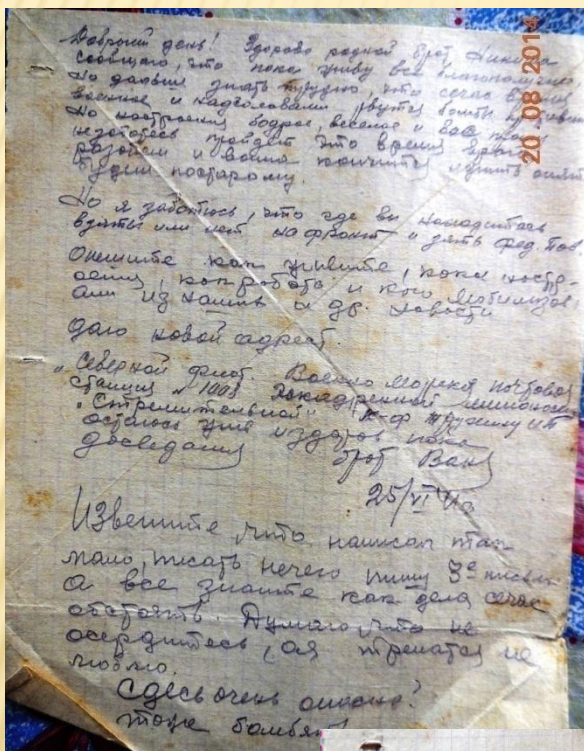 Добрый день! Здорово родной брат
сообщаю, что пока живу все благополучно
Но дальше знать трудно, что сечас время
военное и над головами рвутся бомбы
Но настроения бодрое, веселое и вас прошу
пройдет это время врага
разобьем и война кончится
будем постарому.
Но я заботюсь, что где вы находитесь
взяты или нет на фронт и дять Фед. Пав.
Опишите как живите, кака
как работа и кого мобилизов
али из наших и др. новости
Даю новой адрест.
"Северной флот. Военно Морская почтовая
станция № 1008 Эскадренной миноносец
"Стремительной"
осталось жив и здоров пока
досведания брат Ваня
25/VI 41г
Извените, что написал так
мало, писать нечего пишу 3е письмо
а все знаите как дела сечас
обстоять. Думаю что не
осердитесь, а я трепатся не
люблю.
Сдесь очень опасно?
тоже бомбят!
20 08 2014